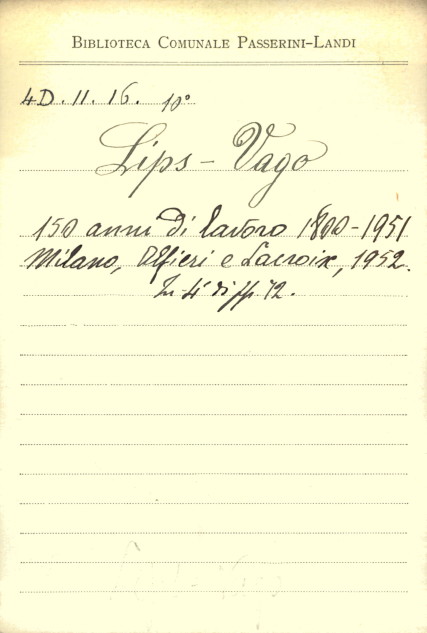 BIBLIOTECA COMUNALE PASSERINI-LANDI
4D. 11. 16. 10°
Lips - Vago
150 anni di lavoro 1800-1951
Milano, Alfieri e Lacroix, 1952.
In 4° di pp. 72.